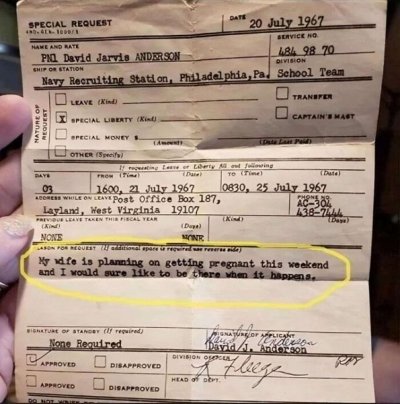 SPECIAL REQUEST
DATE 20 July 1967
NAME AND RATE
SERVICE NO.
PN1 David Jarvis ANDERSON
484 98 70
SHIP OR STATION
DIVISION
Navy Recruiting Station, Philadelphia, Pa. School Team
NATURE OF REQUEST
LEAVE (Kind)
TRANSFER
X SPECIAL LIBERTY (Kind)
CAPTAIN'S MAST
SPECIAL MONEY $
(Amount) (Date Last Paid)
OTHER (Specify)
If requesting Leave or Liberty fill out following
DAYS FROM (Time) (Date) TO (Time) (Date)
03 1600, 21 July 1967 0830, 25 July 1967
ADDRESS WHILE ON LEAVE Post Office Box 187,
Layland, West Virginia 19107
AC-304
438-7444
PREVIOUS LEAVE TAKEN THIS FISCAL YEAR (Days) (Kind) (Date)
NONE NONE
REASON FOR REQUEST (If additional space is required use reverse side)
My wife is planning on getting pregnant this weekend
and I would sure like to be there when it happens.
SIGNATURE OF STANDBY (If required)
SIGNATURE OF APPLICANT
None Required
David J. Anderson
DIVISION OFFICER
APPROVED DISAPPROVED
HEAD OF DEPT.
APPROVED DISAPPROVED